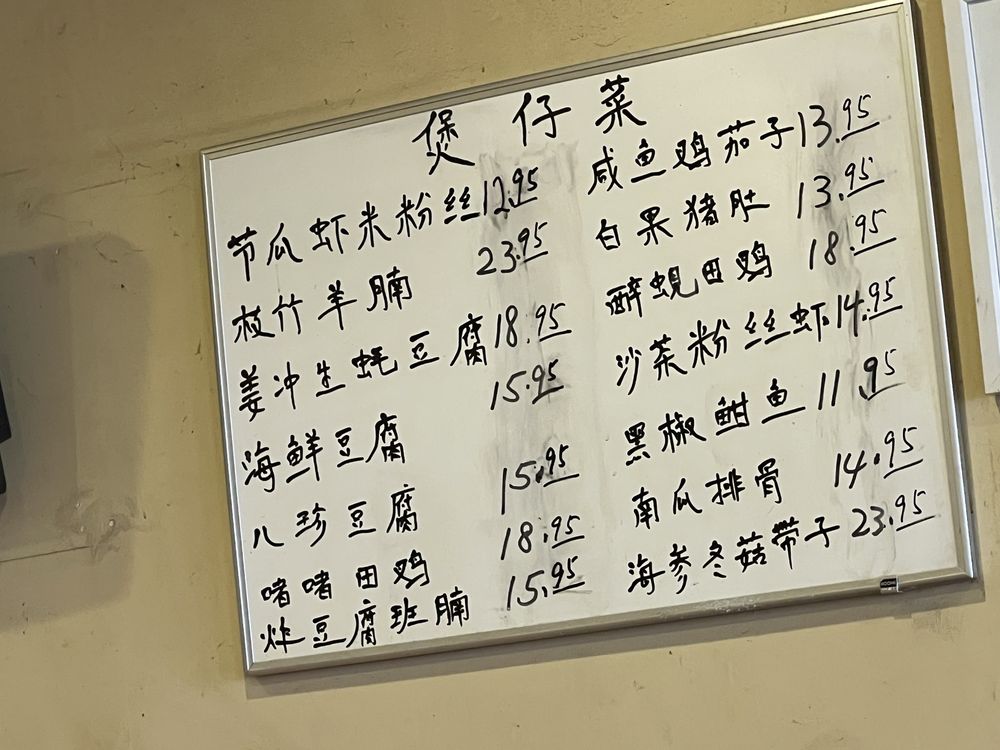 煲仔菜
节瓜虾米粉丝 12.95
枝竹羊腩 23.95
姜冲生蚝豆腐 18.95
海鲜豆腐 15.95
八珍豆腐 15.95
啫啫田鸡 18.95
炸豆腐班腩 15.95
咸鱼鸡茄子 13.95
白果猪肚 13.95
醉蚬田鸡 18.95
沙茶粉丝虾 14.95
黑椒鱿鱼 11.95
南瓜排骨 14.95
海参冬菇带子 23.95